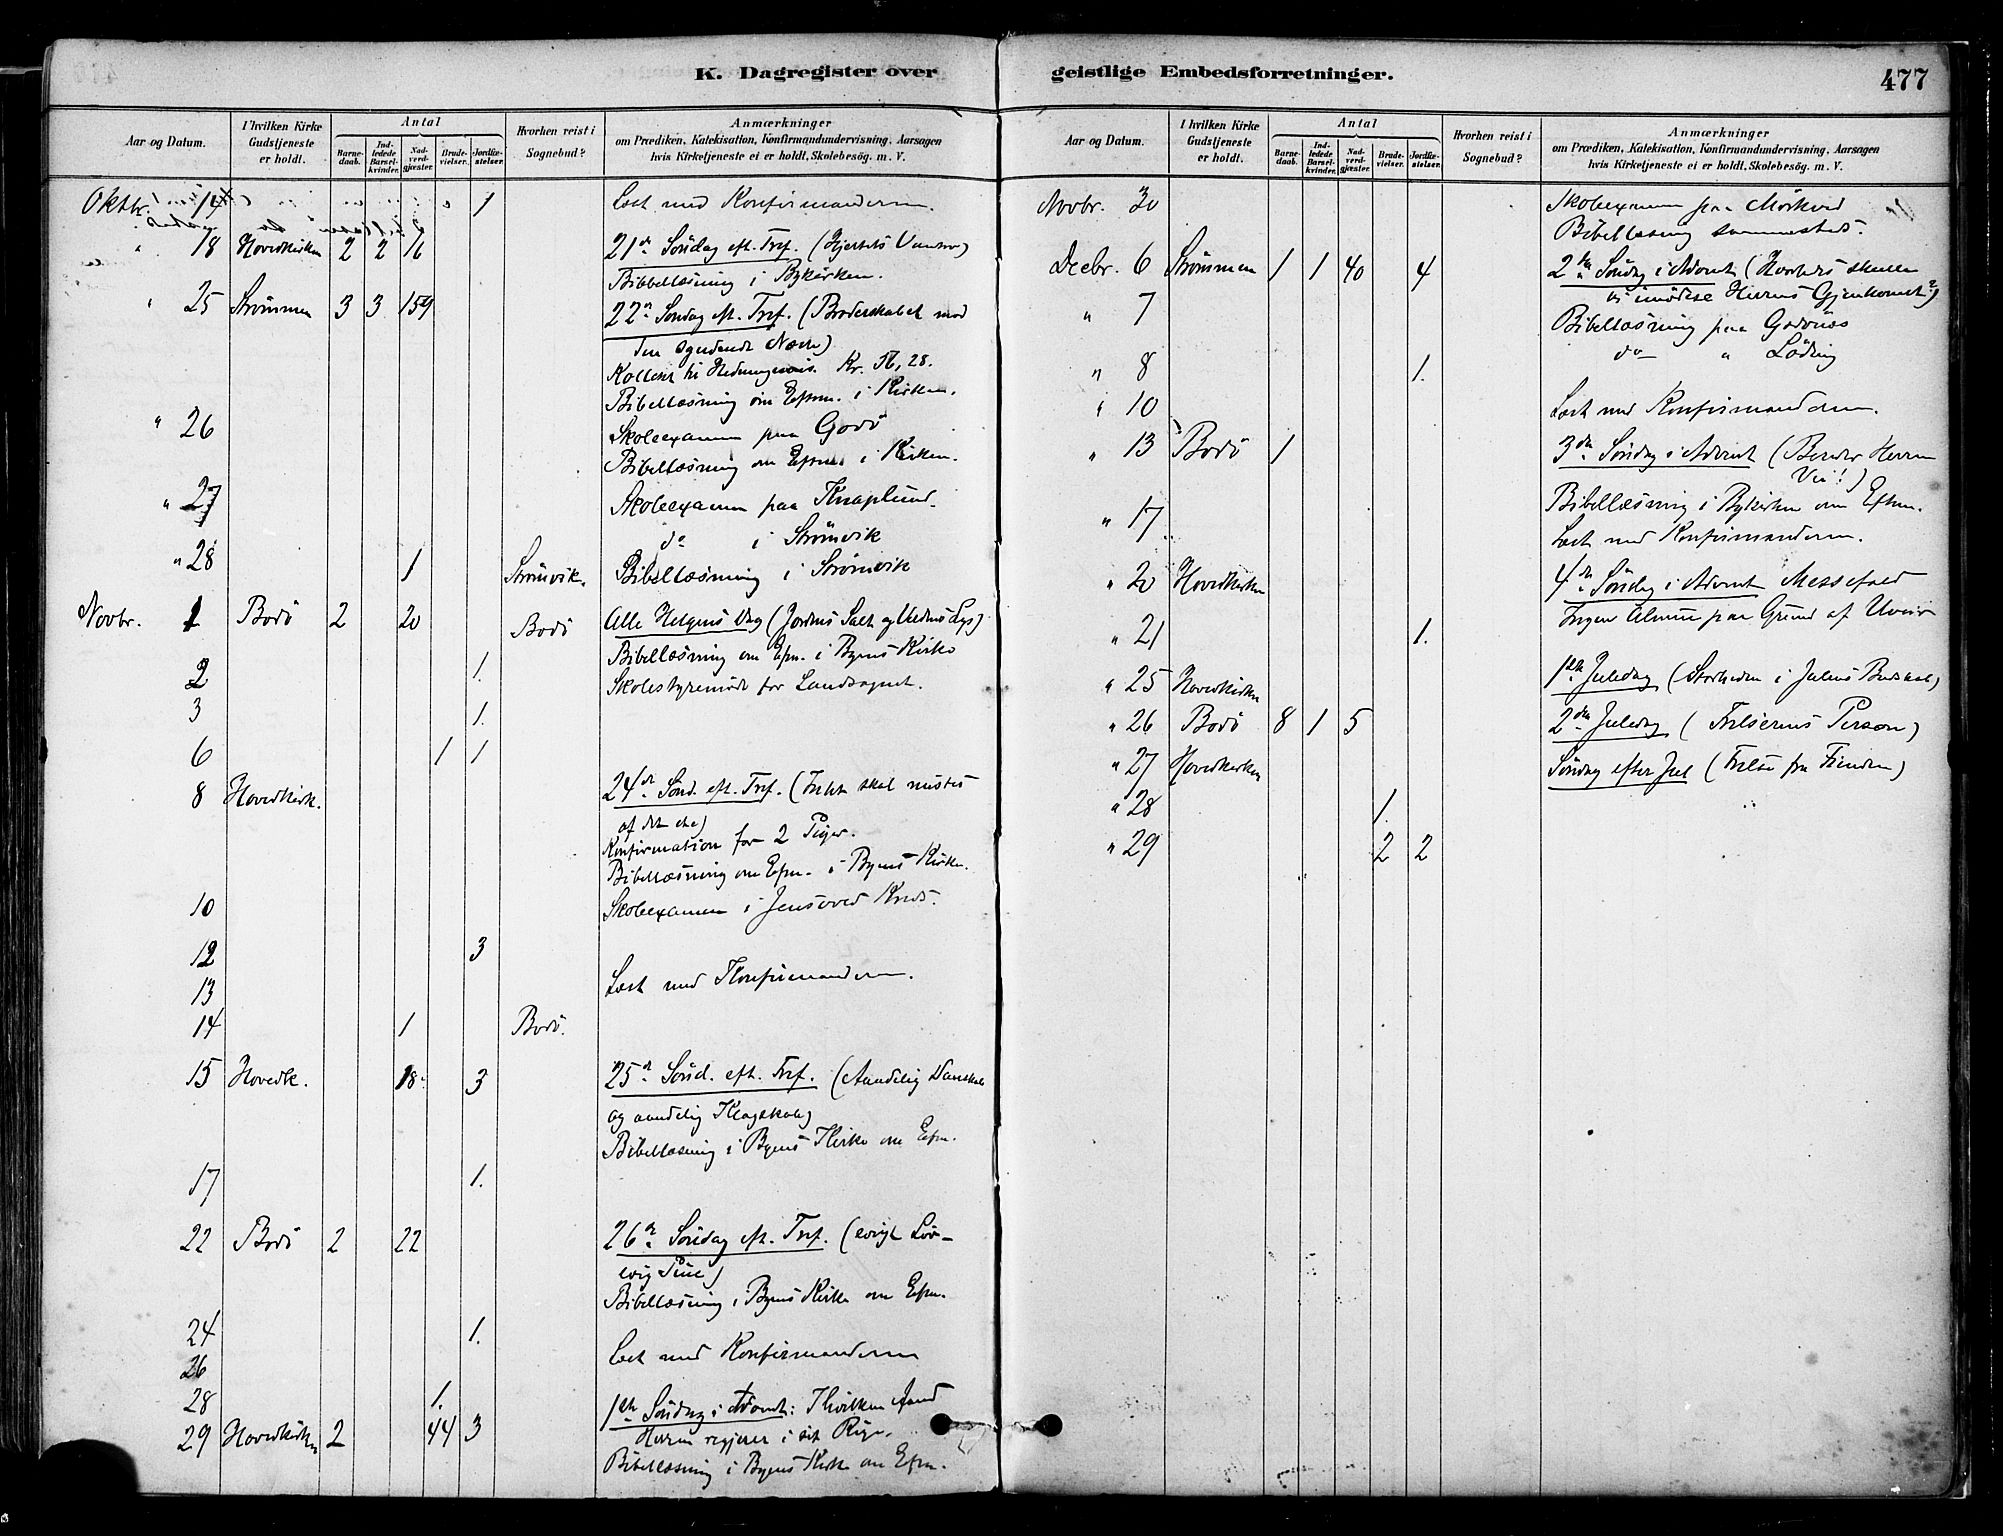 K. Dagregister over geistlige Embedsforretninger. 477
Aar og Datum. I hvilken Kirke Gudstjeneste er holdt. Antal Barnedaab. Indledede Barselkvinder. Nadverdgjæster. Brudevielser. Jordfæstelser. Hvorhen reist i Sognebud? Anmærkninger om Prædiken, Katekisation, Konfirmandundervisning, Aarsagen hvis Kirketjeneste ei er holdt, Skolebesög. m. V.
Oktbr. 14 1 Læst med Konfirmanderne.
" 18 Hovedkirken 2 2 16 21de Söndag eft. Tref. (Hjertets Vantro)
Bibellæsning i Bykirken.
" 25 Strömmen 3 3 159 22de Söndag eft. Tref. (Broderskabet mod
den syndende Næste)
Kollekt til Kr. 28.
Bibellæsning om Efm. i Kirken.
" 26 Skoleexamen paa Godö
Bibellæsning om Efm. i Kirken.
" 27 Skoleexamen paa Knaplund.
do i Strömvik
" 28 1 Strömvik. Bibellæsning i Strömvik
Novbr. 1 Bodö 2 20 Bodö Alle Helgens Dag (Jordens Salt og Verdens Lys)
Bibellæsning om Efm. i Byens Kirke
2 1. Skolestyremöde for Landsognet.
3 1.
6 1 1
8 Hovedkirk. 24de Sönd. eft. Tref. (Intet skal mistes
af det)
Konfirmation for 2 Piger.
Bibellæsning om Efm. i Byens Kirke.
10 Skoleexamen i Jensvold Kreds.
12 3
13 Læst med Konfirmanderne.
14 1 Bodö.
15 Hovedk. 18 3 25de Sönd. eft. Tref. (Aandelig Dauskab
og aandelig Klogskab)
Bibellæsning i Byens Kirke om Efm.
17 1.
22 Bodö 2 22 26de Söndag eft. Tref. (evigt Liv –
evig Pine)
Bibellæsning i Byens Kirke om Efm.
24 1.
26 Læst med Konfirmanderne
28 1.
29 Hovedkirken 2 44 3 1ste Söndag i Advent: I hvilken Aand
Herren regjerer i sit Rige.
Bibellæsning i Byens Kirke om Efm.
Aar og Datum. I hvilken Kirke Gudstjeneste er holdt. Antal Barnedaab. Indledede Barselkvinder. Nadverdgjæster. Brudevielser. Jordfæstelser. Hvorhen reist i Sognebud? Anmærkninger om Prædiken, Katekisation, Konfirmandundervisning, Aarsagen hvis Kirketjeneste ei er holdt, Skolebesög. m. V.
Novbr. 30 Skoleexamen paa Mörkved
Bibellæsning sammesteds.
Decbr. 6 Strömmen 1 1 40 4 2den Söndag i Advent (Hvorledes skulle
vi imödese Herrens Gjenkomst?)
" 7 Bibellæsning paa Godönes
do " Löding
" 8 1.
" 10 Læst med Konfirmanderne.
" 13 Bodö 1 3die Söndag i Advent (Bereder Herrens
Vei!)
Bibellæsning i Bykirken om Eftm.
" 17 Læst med Konfirmanderne.
" 20 Hovedkirken 4de Söndag i Advent Messefald
Ingen Almue paa Grund af Uveir
" 21 1.
" 25 Hovedkirken 1ste Juledag (Storheden i Julens Budskab)
" 26 Bodö 8 1 5 2den Juledag (Frelserens Person)
" 27 Hovedkirken Söndag efter Jul (Frelse fra Fienden)
" 28 1.
" 29 2 2